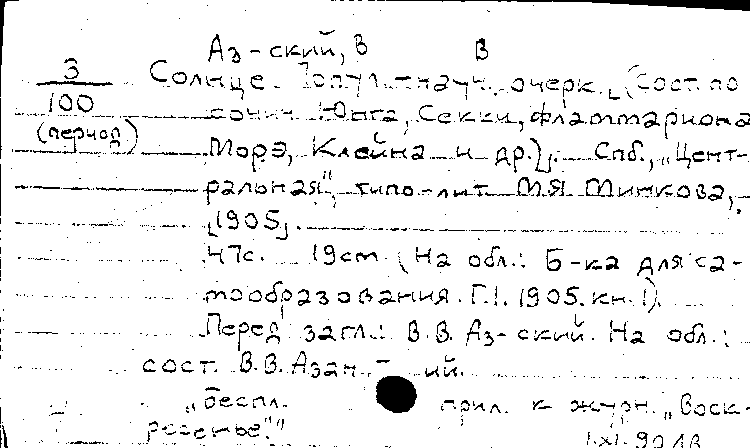 Аз-ский, В В
3
100
(период)
Солнце. Попул.-науч. очерк. [Сост. по
сочин. Юнга, Секки, Фламмариона
Морэ, Клейна и др.]. Спб., „Цент-
ральная", типо-лит. М.Я. Минкова,
[1905].
47с. 19см. (На обл.: Б-ка для са-
мообразования. Г.I. 1905. кн. I).
Перед загл.: В.В. Аз-ский. На обл.:
сост. В.В. Азан ий.
„Беспл. прил. к журн. „Воск-
ресенье""